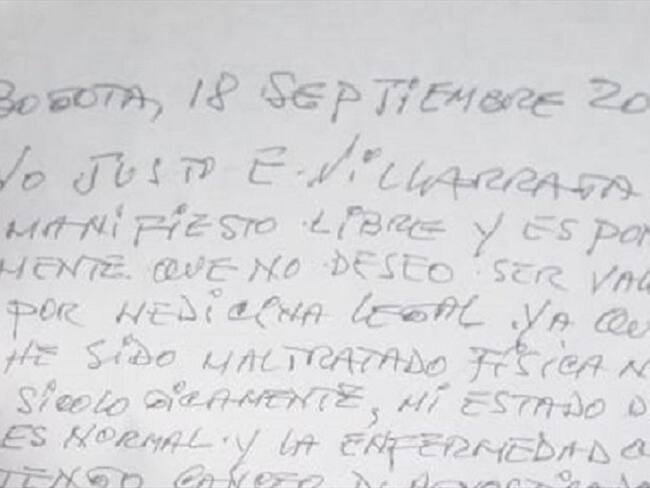 BOGOTA, 18 SEPTIEMBRE 20
YO JUSTO E. VILLARRAGA
MANIFIESTO LIBRE Y ESPON
MENTE QUE NO DESEO SER VAL
POR MEDICINA LEGAL. YA QU
HE SIDO MALTRATADO FÍSICA N
SICOLOGICAMENTE, MI ESTADO D
ES NORMAL. Y LA ENFERMEDAD Q
TENGO CANCER DIAGNOSTICADO